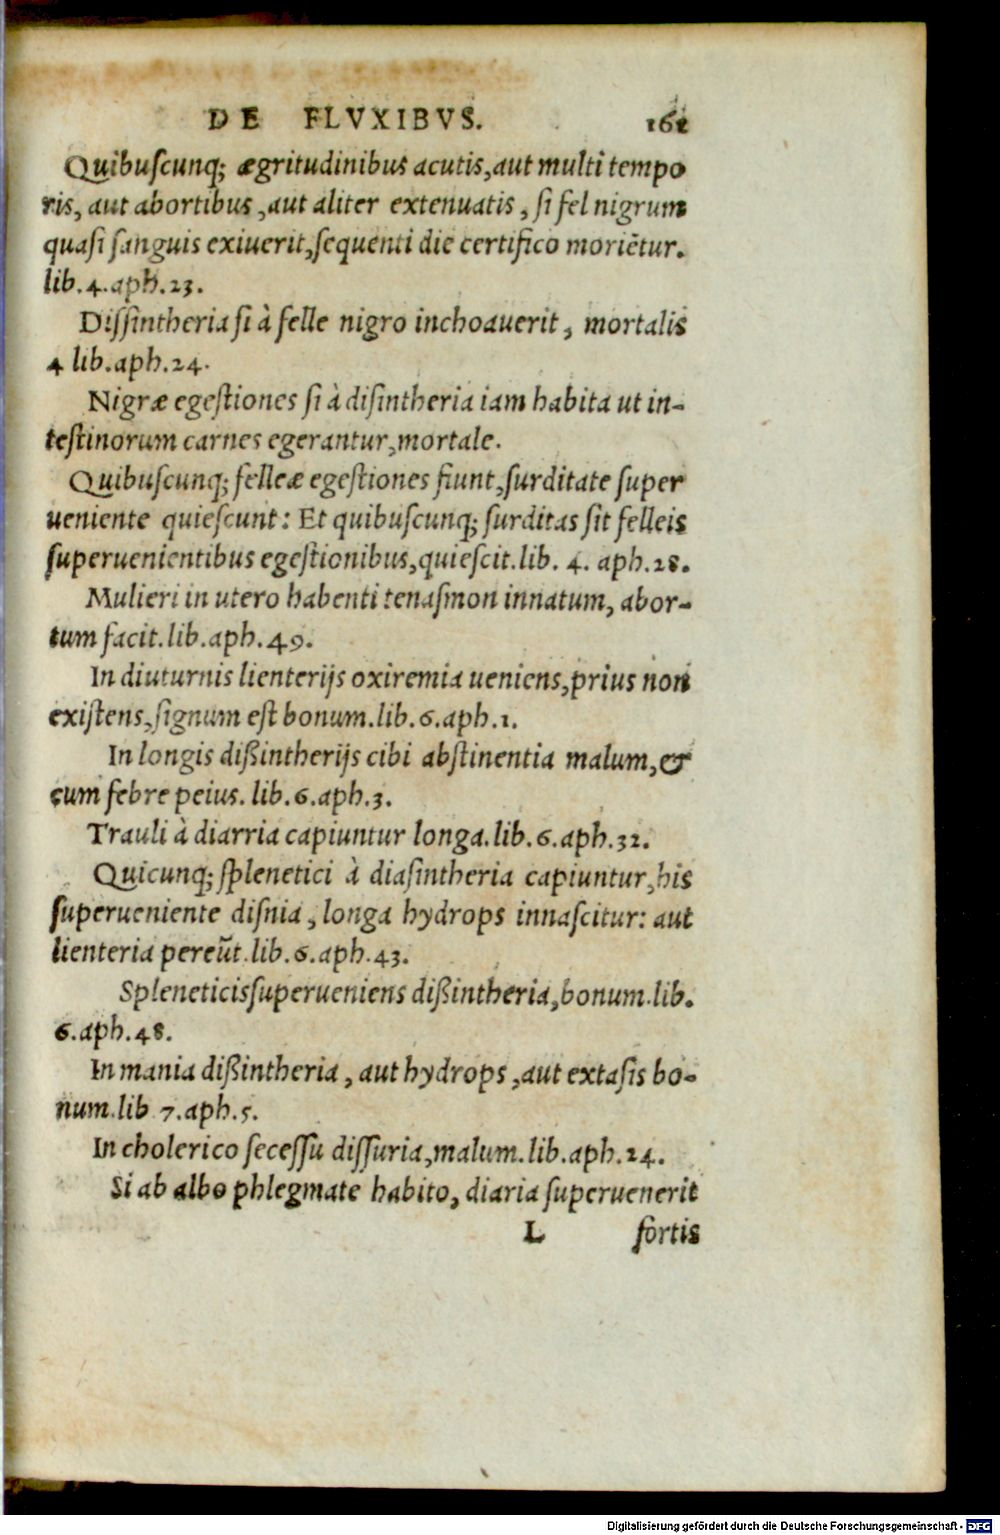 DE FLVXIBVS. 161
Quibuſcunq; ægritudinibus acutis,aut multi tempo
ris, aut abortibus ,aut aliter extenuatis , ſi fel nigrum
quaſi ſanguis exiuerit,ſequenti die certifico moriẽtur.
lib.4.aph.23.
Diſſintheria ſi à felle nigro inchoauerit , mortalis
4 lib.aph.24.
Nigræ egeſtiones ſi à diſintheria iam habita ut in-
teſtinorum carnes egerantur,mortale.
Quibuſcunq; felleæ egeſtiones fiunt,ſurditate ſuper
ueniente quieſcunt: Et quibuſcunq; ſurditas ſit felleis
ſuperuenientibus egeſtionibus,quieſcit.lib. 4. aph.28.
Mulieri in utero habenti tenaſmon innatum, abor-
tum facit.lib.aph.49.
In diuturnis lienterijs oxiremia ueniens,prius non
exiſtens,ſignum eſt bonum.lib.6.aph.1.
In longis dißintherijs cibi abſtinentia malum,&
cum febre peius. lib.6.aph.3.
Trauli à diarria capiuntur longa.lib.6.aph.32.
Quicunq; ſplenetici à diaſintheria capiuntur,his
ſuperueniente diſnia , longa hydrops innaſcitur: aut
lienteria pereũt.lib.6.aph.43.
Spleneticisſuperueniens dißintheria,bonum.lib.
6.aph.48.
In mania dißintheria , aut hydrops ,aut extaſis bo-
num.lib 7.aph.5.
In cholerico ſeceſſu diſſuria,malum.lib.aph.24.
Si ab albo phlegmate habito, diaria ſuperuenerit
L fortis
Digitalisierung gefördert durch die Deutsche Forschungsgemeinschaft - DFG